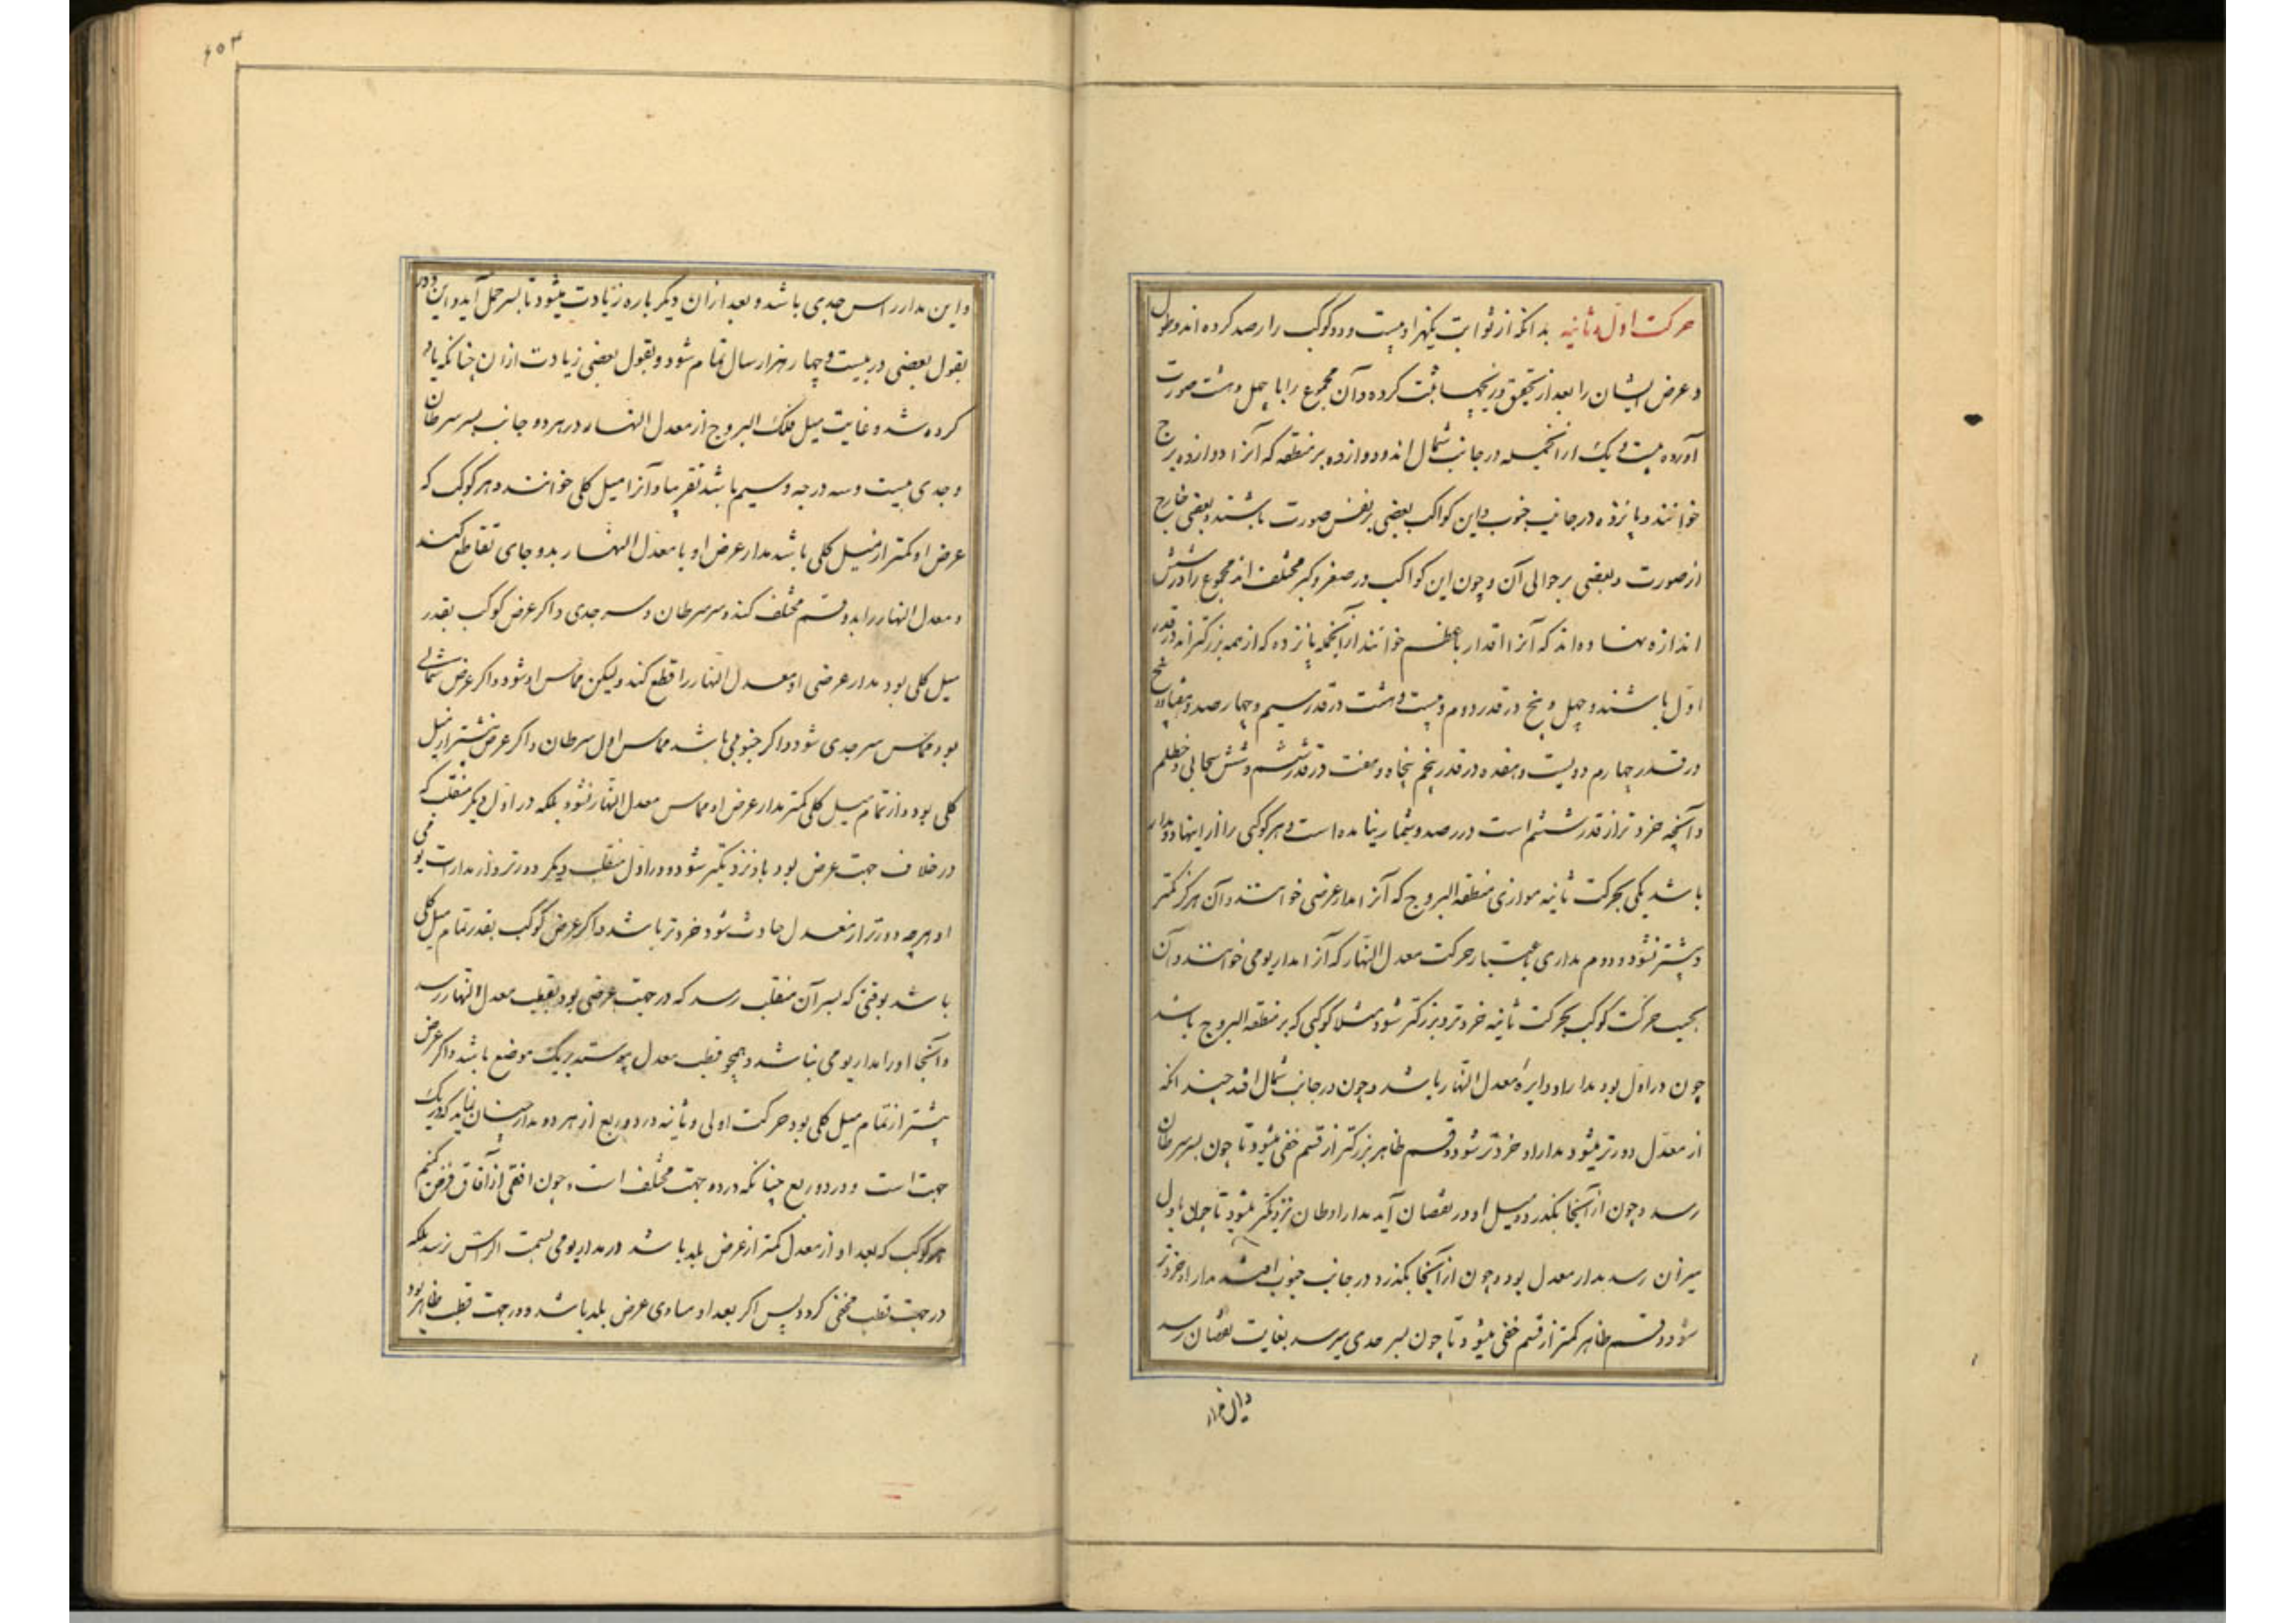 حرکت اول و ثانیه بدانکه از ثوابت یکهزار و بیست و دو کوکب را رصد کرده اند و طول
و عرض ایشان را بعد از تحقیق در زیجها ثبت کرده و آن مجموع را با چهل و هشت صورت
آورده بیست و یک از آنجمله در جانب شمال اند و دوازده بر منطقه که آنرا دوازده برج
خوانند و پانزده در جانب جنوب و این کواکب بعضی بر نفس صورت باشند و بعضی خارج
از صورت و بعضی بر حوالی آن و چون این کواکب در صغر و کبر مختلف اند مجموع را در شش
اندازه نهاده اند که آنرا اقدار با عظم خوانند از آنجمله پانزده که از همه بزرگتراند در قدر
اول باشند و چهل و پنج در قدر دوم و بیست و هشت در قدر سیم و چهار صد و هفتاد و پنج
در قدر چهارم دویست و هفده در قدر پنجم پنجاه و هفت در قدر ششم و شش سحابی و مظلم
و آنچه خردتر از قدر ششم است در رصد و شمار نیامده است و هر کوکبی را از اینها دو مدار
باشد یکی بحرکت ثانیه موازی منطقه البروج که آنرا مدار عرضی خوانند و آن هرگز کمتر
و بیشتر نشود و دوم مداری باعتبار حرکت معدل النهار که آنرا مدار یومی خوانند و آن
بحسب حرکت کوکب بحرکت ثانیه خردتر و بزرگتر شود مثلا کوکبی که بر منطقه البروج باشد
چون در اول بود مدار او دایرهٔ معدل النهار باشد و چون در جانب شمال افتد چندانکه
از معدل دورتر میشود مدار او خردتر شود و قسم ظاهر بزرگتر از قسم خفی میشود تا چون بسر سرطان
رسد و چون از آنجا بگذرد و میل او در نقصان آید مدار او نزدیکتر میشود تا چون باول
میزان رسد مدار معدل بود و چون از آنجا بگذرد در جانب جنوب افتد مدار او خردتر
شود و قسم ظاهر کمتر از قسم خفی میشود تا چون بسر جدی میرسد بغایت نقصان رسد
۶۰۳
و این مدار راس جدی باشد و بعد از ان دیگر باره زیادت میشود تا بسر حمل آید و این دور
بقول بعضی در بیست و چهار هزار سال تمام شود و بقول بعضی زیادت از ان چنانکه یاد
کرده شد و غایت میل فلک البروج از معدل النهار در هر دو جانب بسر سرطان
و جدی بیست و سه درجه و سیم باشد تقریبا و آنرا میل کلی خوانند و هر کوکب که
عرض او کمتر از میل کلی باشد مدار عرض او با معدل النهار بدو جای تقاطع کند
و معدل النهار را بدو قسم مختلف کند و سر سرطان و سر جدی و اگر عرض کوکب بقدر
میل کلی بود مدار عرضی او معدل النهار را قطع کند ولیکن مماس او شود و اگر عرض شمالی
بود مماس سر جدی شود و اگر جنوبی باشد مماس اول سرطان و اگر عرض بیشتر از میل
کلی بود و از تمام میل کلی کمتر مدار عرض او مماس معدل النهار نشود بلکه در اول دیگر منقلب که
در خلاف جهت عرض بود باو نزدیکتر شود و در اول منقلب دیگر دورتر و از مدارات یومی
او هرچه دورتر از معدل حادث شود خردتر باشد و اگر عرض کوکب بقدر تمام میل کلی
باشد بوقتی که بسر آن منقلب رسد که در جهت عرضی بود بقطب معدل النهار رسد
و آنجا او را مدار یومی نباشد و همچو قطب معدل پیوسته بریک موضع باشد و اگر عرض
بیشتر از تمام میل کلی بود حرکت اولی و ثانیه در دو ربع از هر دو مدار چنان نماید که در یک
جهت است و در دو ربع چنانکه در دو جهت مختلف است و چون افقی از آفاق فرض کنیم
هر کوکب که بعد او از معدل کمتر از عرض بلد باشد در مدار یومی بسمت الراس نرسد بلکه
در جهت قطب مخفی گردد پس اگر بعد او مساوی عرض بلد باشد و در جهت قطب ظاهر بود